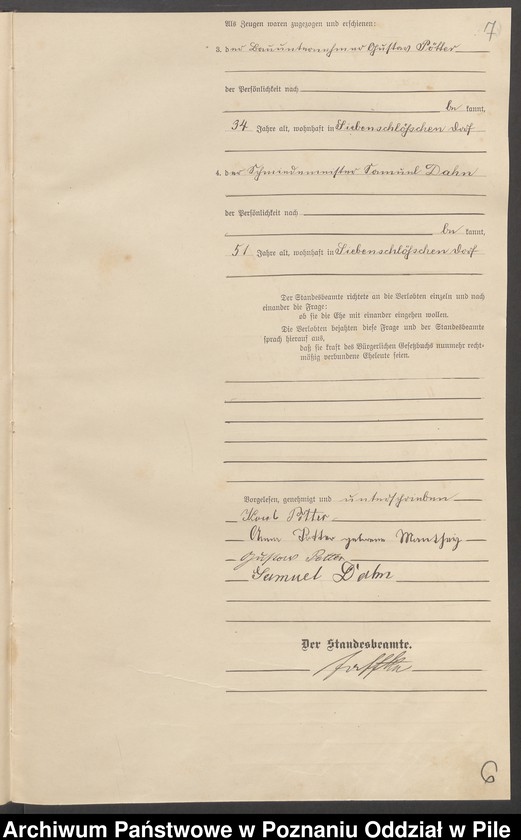 7
Als Zeugen waren zugezogen und erschienen:
3. der Bauunternehmer Gustav Pötter
der Persönlichkeit nach
be kannt,
34 Jahre alt, wohnhaft in Siebenschlößchen Dorf
4. der Schmiedemeister Samuel Dahn
der Persönlichkeit nach
be kannt,
51 Jahre alt, wohnhaft in Siebenschlößchen Dorf
Der Standesbeamte richtete an die Verlobten einzeln und nach
einander die Frage:
ob sie die Ehe mit einander eingehen wollen.
Die Verlobten bejahten diese Frage und der Standesbeamte
sprach hierauf aus,
daß sie kraft des Bürgerlichen Gesetzbuchs nunmehr recht-
mäßig verbundene Eheleute seien.
Vorgelesen, genehmigt und unterschrieben
Pötter
Anna Pötter geborene Manthey
Gustav Pötter
Samuel Dahn
Der Standesbeamte.
6
Archiwum Państwowe w Poznaniu Oddział w Pile